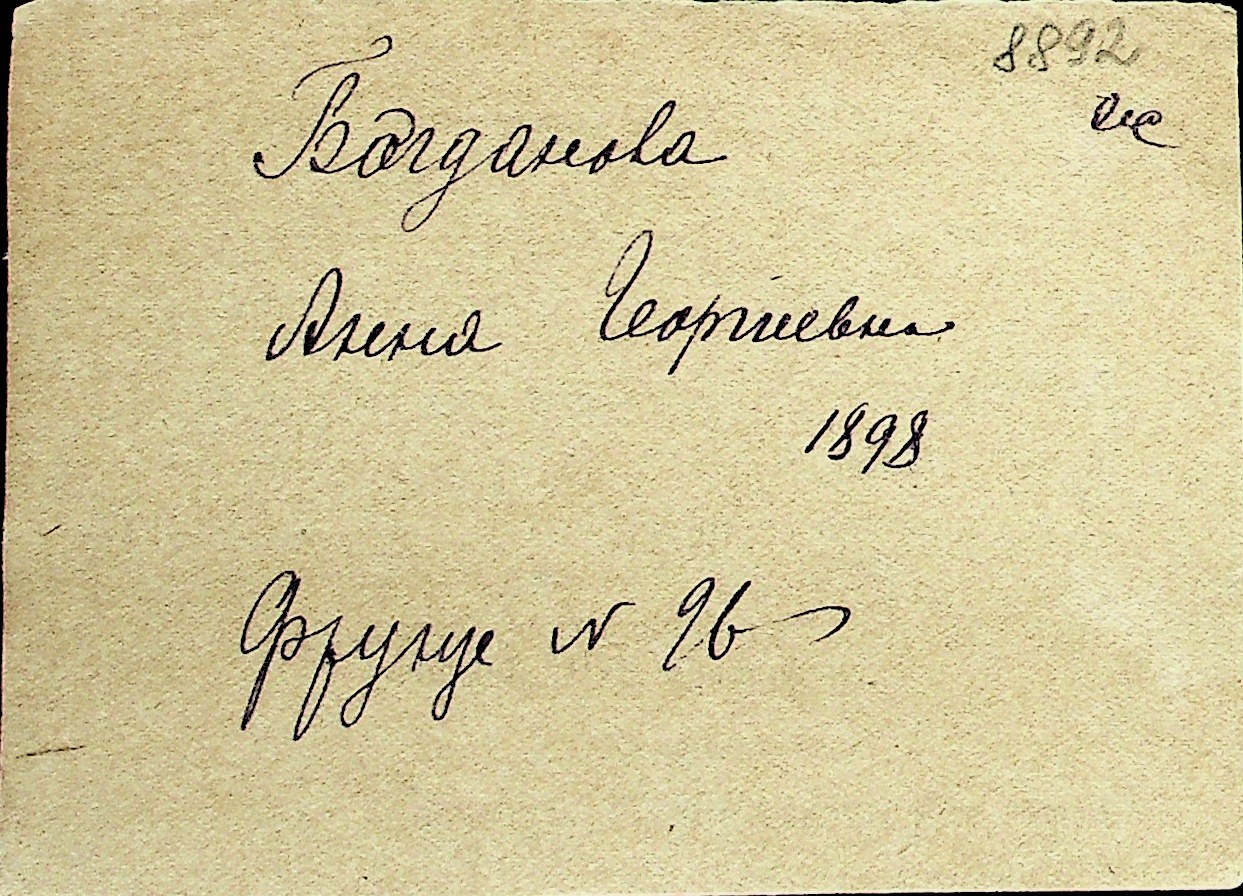 8892
Богданова
Анна Георгиевна
1898
Фрунзе № 96